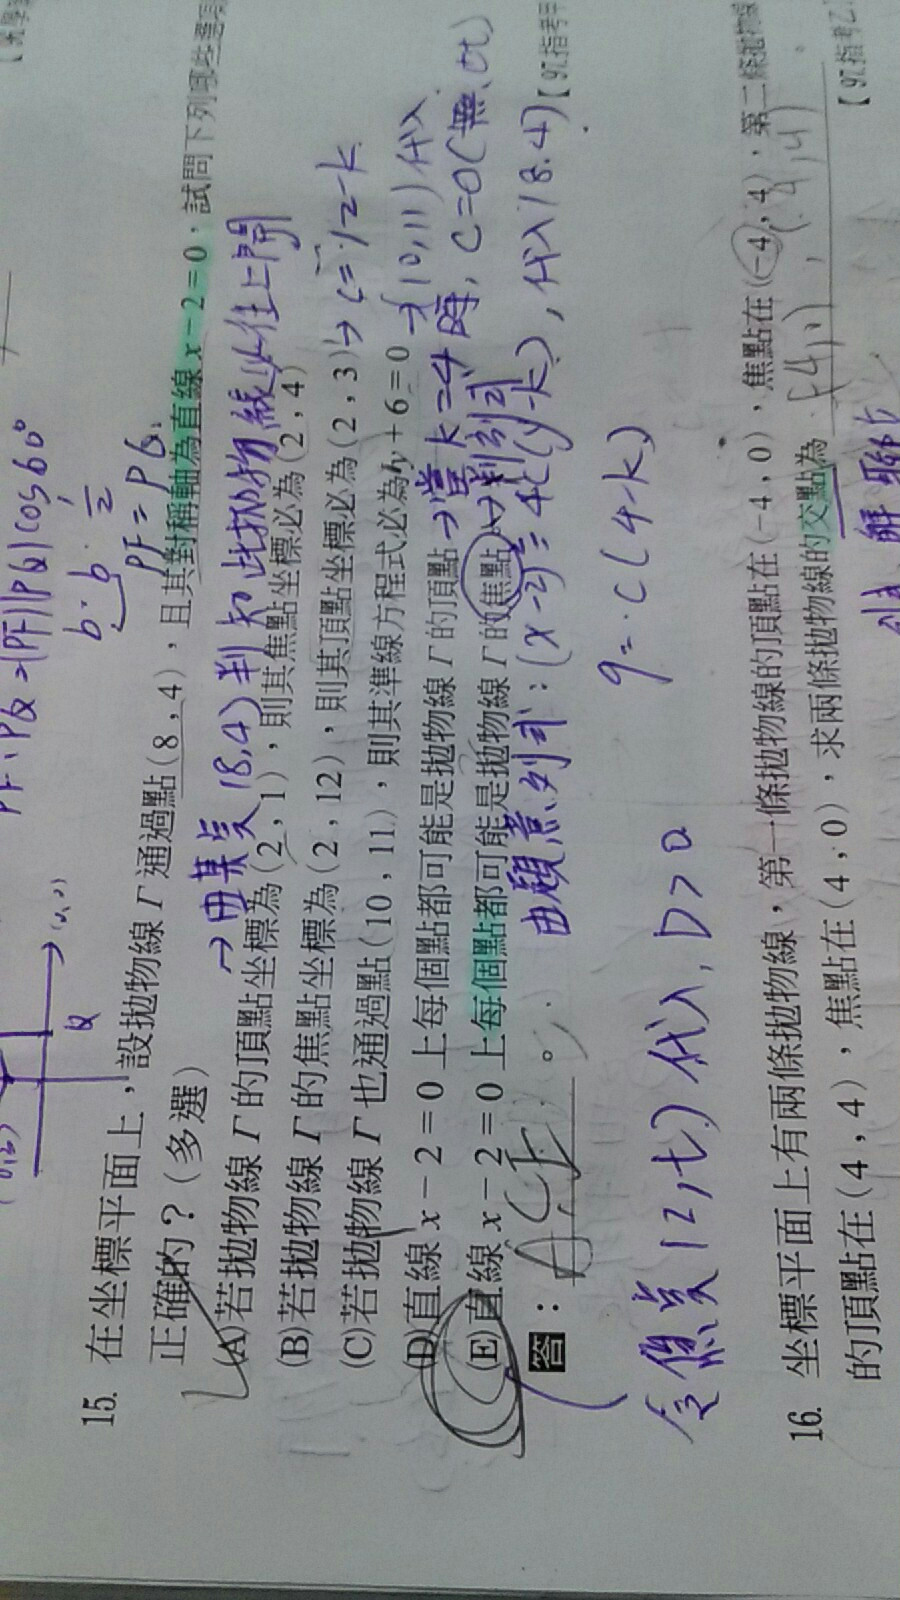 PF·PQ=|PF||PQ|cos60°
b·b·1/2
PF=PQ
Q
15. 在坐標平面上,設拋物線Γ通過點(8,4),且其對稱軸為直線x-2=0,試問下列哪些選項
正確的?(多選)
→由某点(8.4)判知此拋物線必往上開
(A)若拋物線Γ的頂點坐標為(2,1),則其焦點坐標必為(2,4)
(B)若拋物線Γ的焦點坐標為(2,12),則其頂點坐標必為(2,3)→c=12-k
(C)若拋物線Γ也通過點(10,11),則其準線方程式必為y+6=0→(10,11)代入
(D)直線x-2=0上每個點都可能是拋物線Γ的頂點→當k=4時,c=0(無
(E)直線x-2=0上每個點都可能是拋物線Γ的焦點→判別式
由頂焦列式:(x-2)²=4c(y-k),代入(8.4)
【97.指考甲
答:ACE。
9=c(4-k)
令焦点(2,t)代入,D>0
16. 坐標平面上有兩條拋物線,第一條拋物線的頂點在(-4,0),焦點在(-4,4),第二條拋物線
的頂點在(4,4),焦點在(4,0),求兩條拋物線的交點為
【97.指考乙